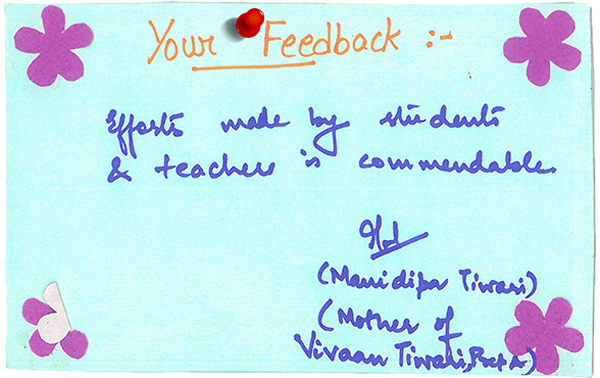 Your Feedback :-
Efforts made by students
& teachers is commendable.
(Manidipa Tiwari)
(Mother of
Vivaan Tiwari,